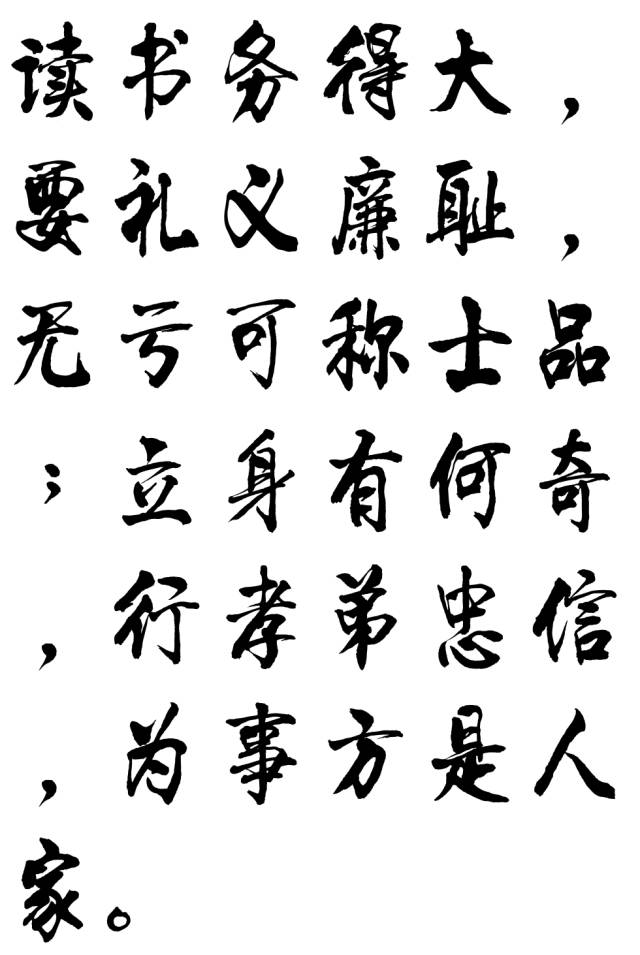 读书务得大，
要礼义廉耻，
无亏可称士品
；立身有何奇
，行孝弟忠信
，为事方是人
家。